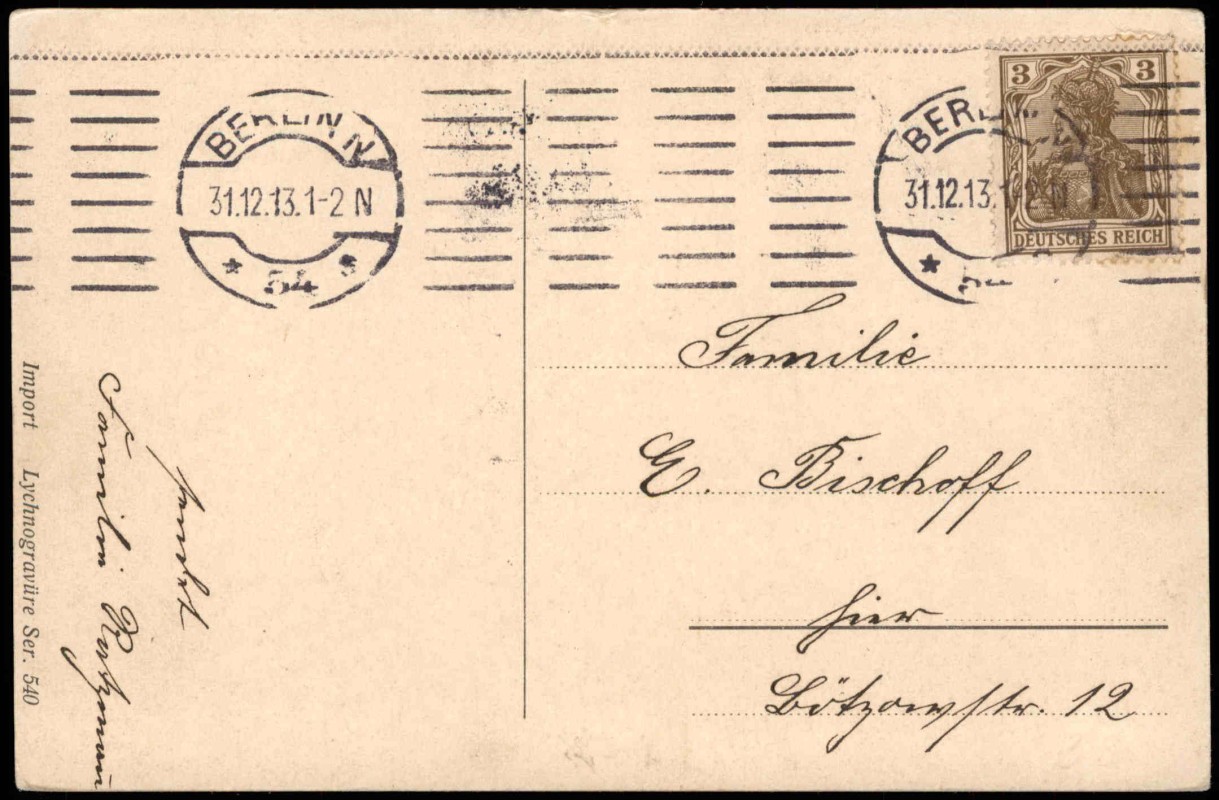 BERLIN N
31.12.13.1-2 N
* 54 s
BERL
31.12.13.1-2 N
*
3 3
DEUTSCHES REICH
Familie
E. Bischoff
hier
Bötzowstr. 12
sendet
Familie
Import Lychnogravüre Ser. 540